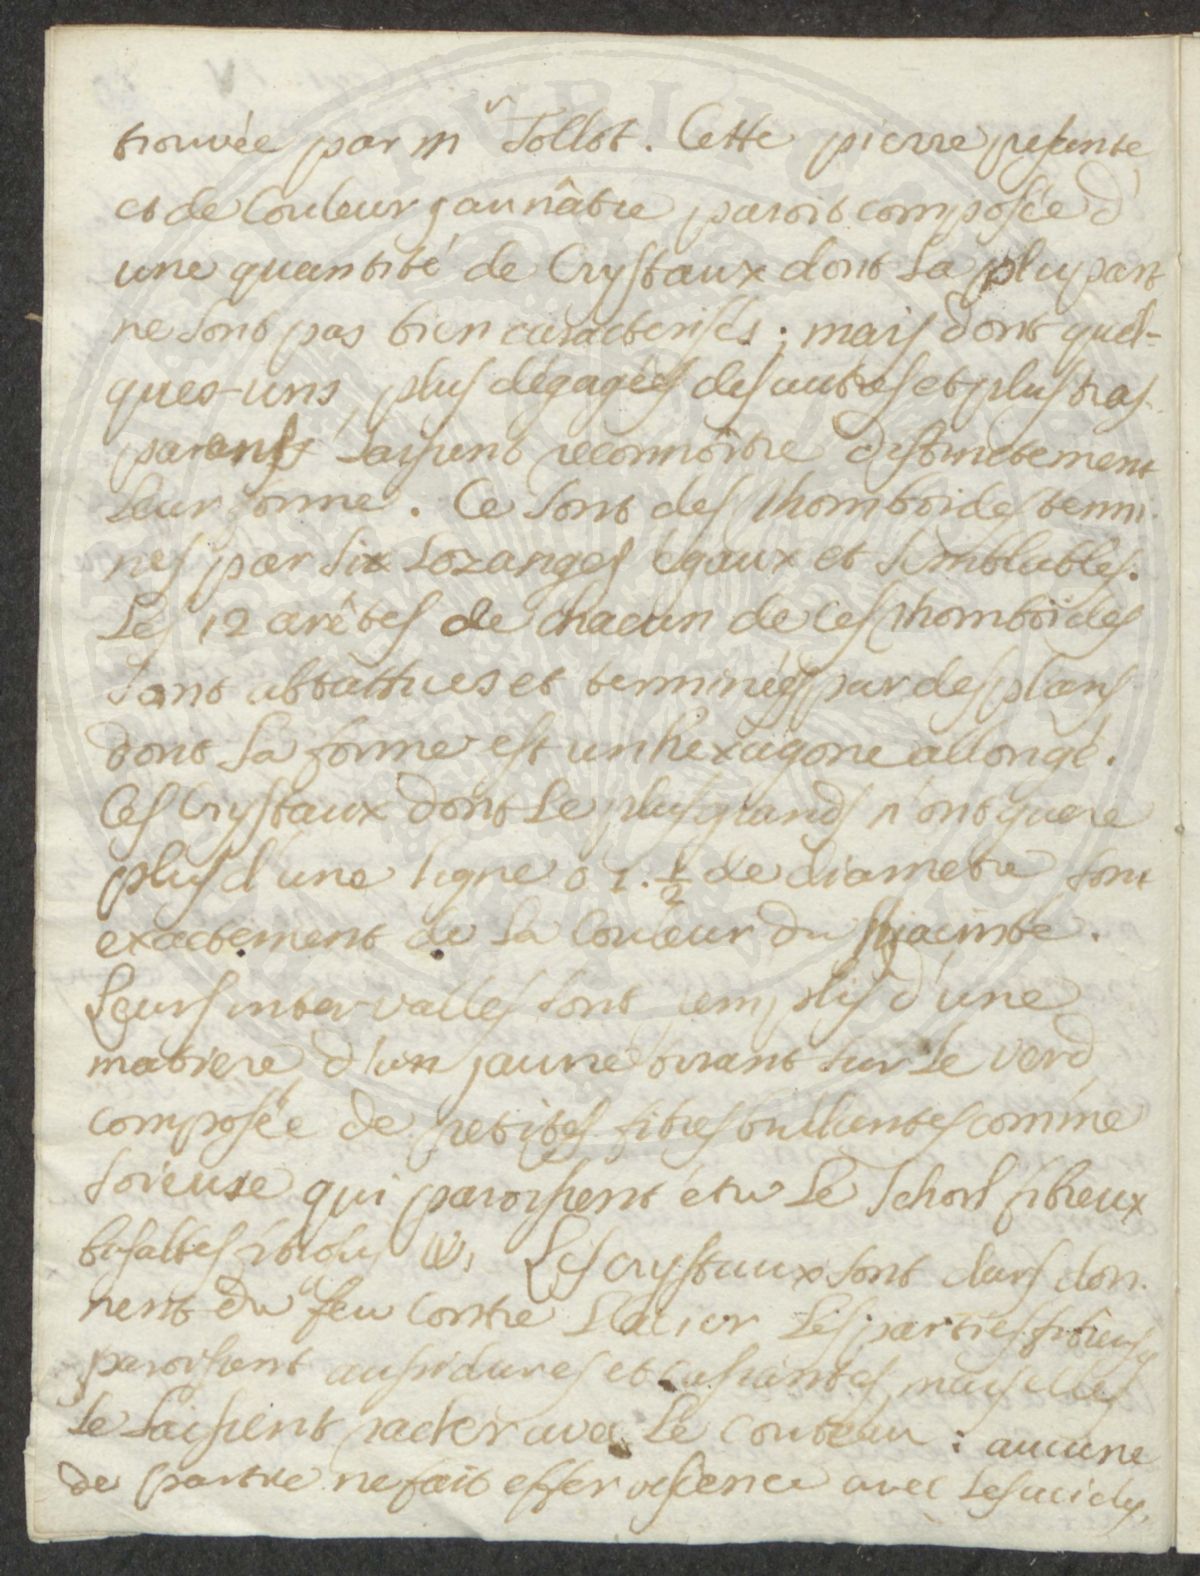 trouvée par mr Tollot. Cette pierre pesante
et de Couleur jaunâtre paroit composée d'
une quantité de Crystaux dont La pluspart
ne sont pas bien caracterisés ; mais dont quel-
ques-uns, plus dégagées des autres et plus tras-
parants Laissent reconnoître distinctement
Leur forme. Ce sont des rhomboides termi-
nes par six Lozanges égaux et semblables.
Les 12 arêtes de chacun de ces rhomboides
sont abbattues et terminées par des plans
dont La forme est un héxagone allongé.
Ces Crystaux dont Le plus grands n'ont guere
plus d'une ligne o 1. 1/2 de diametre sont
exactement de La Couleur du hiacinthe.
Leurs intervalles sont remplis d'une
matiere d'un jaune tirant sur Le verd
composée de petites fibres brillantes comme
soieuse qui paroissent être Le Schorl fibreux
basaltes fibrosus W. Les crystaux sont durs don-
nent du feu contre L'acier Les parties fibreuses
paroissent aussi dures et mais elles
se Laissent racler avec Le Couteau : aucune
de partie ne fait effervescence avec Les acides,